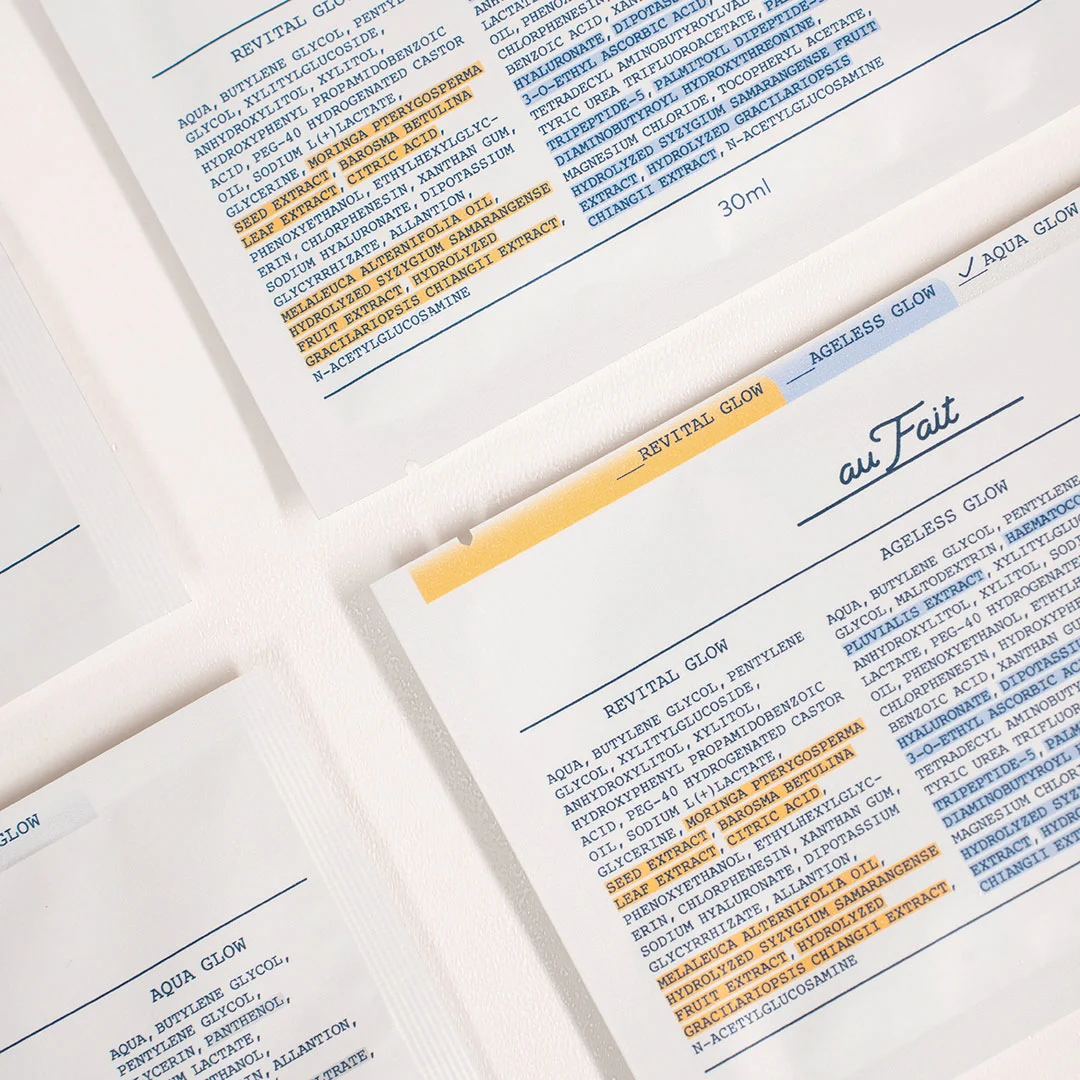 REVITAL GLOW
AQUA, BUTYLENE GLYCOL, PENTYLENE
GLYCOL, XYLITYLGLUCOSIDE,
ANHYDROXYLITOL, XYLITOL,
HYDROXYPHENYL PROPAMIDOBENZOIC
ACID, PEG-40 HYDROGENATED CASTOR
OIL, SODIUM L(+)LACTATE,
GLYCERINE, MORINGA PTERYGOSPERMA
SEED EXTRACT, BAROSMA BETULINA
LEAF EXTRACT, CITRIC ACID,
PHENOXYETHANOL, ETHYLHEXYLGLYC-
ERIN, CHLORPHENESIN, XANTHAN GUM,
SODIUM HYALURONATE, DIPOTASSIUM
GLYCYRRHIZATE, ALLANTION,
MELALEUCA ALTERNIFOLIA OIL,
HYDROLYZED SYZYGIUM SAMARANGENSE
FRUIT EXTRACT, HYDROLYZED
GRACILARIOPSIS CHIANGII EXTRACT,
N-ACETYLGLUCOSAMINE
OIL, PHENOXYETHANOL,
CHLORPHENESIN,
BENZOIC ACID, XANTHAN
HYALURONATE, DIPOTASSIUM
3-O-ETHYL ASCORBIC ACID,
TETRADECYL AMINOBUTYROYLVAL
TYRIC UREA TRIFLUOROACETATE,
TRIPEPTIDE-5, PALMITOYL DIPEPTIDE-5
DIAMINOBUTYROYL HYDROXYTHREONINE,
MAGNESIUM CHLORIDE, TOCOPHERYL ACETATE,
HYDROLYZED SYZYGIUM SAMARANGENSE FRUIT
EXTRACT, HYDROLYZED GRACILARIOPSIS
CHIANGII EXTRACT, N-ACETYLGLUCOSAMINE
30ml
__REVITAL GLOW
__AGELESS GLOW
✓ AQUA GLOW
au Fait
REVITAL GLOW
AQUA, BUTYLENE GLYCOL, PENTYLENE
GLYCOL, XYLITYLGLUCOSIDE,
ANHYDROXYLITOL, XYLITOL,
HYDROXYPHENYL PROPAMIDOBENZOIC
ACID, PEG-40 HYDROGENATED CASTOR
OIL, SODIUM L(+)LACTATE,
GLYCERINE, MORINGA PTERYGOSPERMA
SEED EXTRACT, BAROSMA BETULINA
LEAF EXTRACT, CITRIC ACID,
PHENOXYETHANOL, ETHYLHEXYLGLYC-
ERIN, CHLORPHENESIN, XANTHAN GUM,
SODIUM HYALURONATE, DIPOTASSIUM
GLYCYRRHIZATE, ALLANTION,
MELALEUCA ALTERNIFOLIA OIL,
HYDROLYZED SYZYGIUM SAMARANGENSE
FRUIT EXTRACT, HYDROLYZED
GRACILARIOPSIS CHIANGII EXTRACT,
N-ACETYLGLUCOSAMINE
AGELESS GLOW
AQUA, BUTYLENE GLYCOL, PENTYLENE
GLYCOL, MALTODEXTRIN, HAEMATOCO
PLUVIALIS EXTRACT, XYLITYLGLU
ANHYDROXYLITOL, XYLITOL, SODI
LACTATE, PEG-40 HYDROGENATE
OIL, PHENOXYETHANOL, ETHYLH
CHLORPHENESIN, HYDROXYPHE
BENZOIC ACID, XANTHAN GU
HYALURONATE, DIPOTASSI
3-O-ETHYL ASCORBIC AC
TETRADECYL AMINOBUTY
TYRIC UREA TRIFLUOR
TRIPEPTIDE-5, PALM
DIAMINOBUTYROYL
MAGNESIUM CHLOR
HYDROLYZED SYZ
EXTRACT, HYDRO
CHIANGII EXT
GLOW
AQUA GLOW
AQUA, BUTYLENE GLYCOL,
PENTYLENE GLYCOL,
LYCERIN, PANTHENOL,
M LACTATE,
HANOL, ALLANTION,
LTRATE,